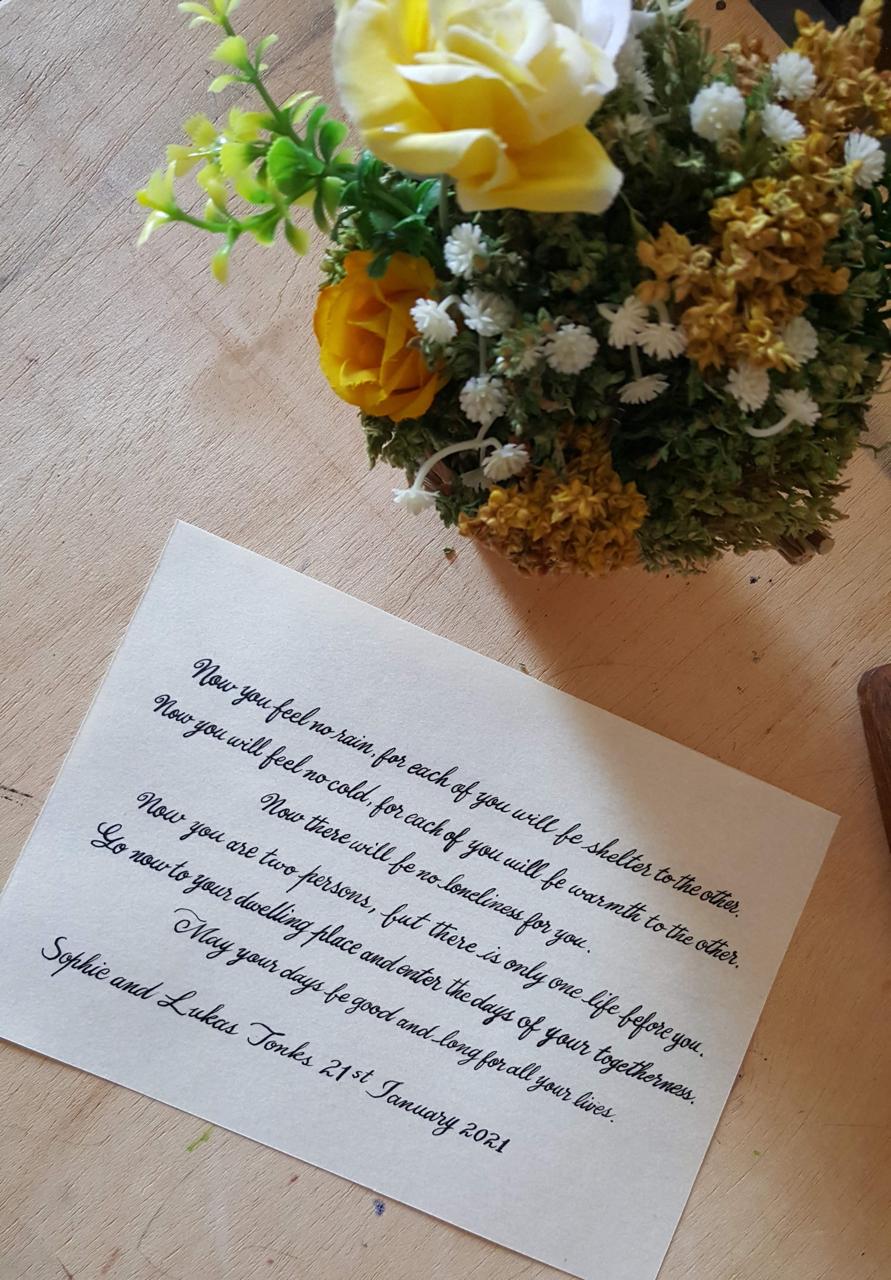 Now you feel no rain, for each of you will be shelter to the other.
Now you will feel no cold, for each of you will be warmth to the other.
Now there will be no loneliness for you.
Now you are two persons, but there is only one life before you.
Go now to your dwelling place and enter the days of your togetherness.
May your days be good and long for all your lives.
Sophie and Lukas Tonks 21st January 2021